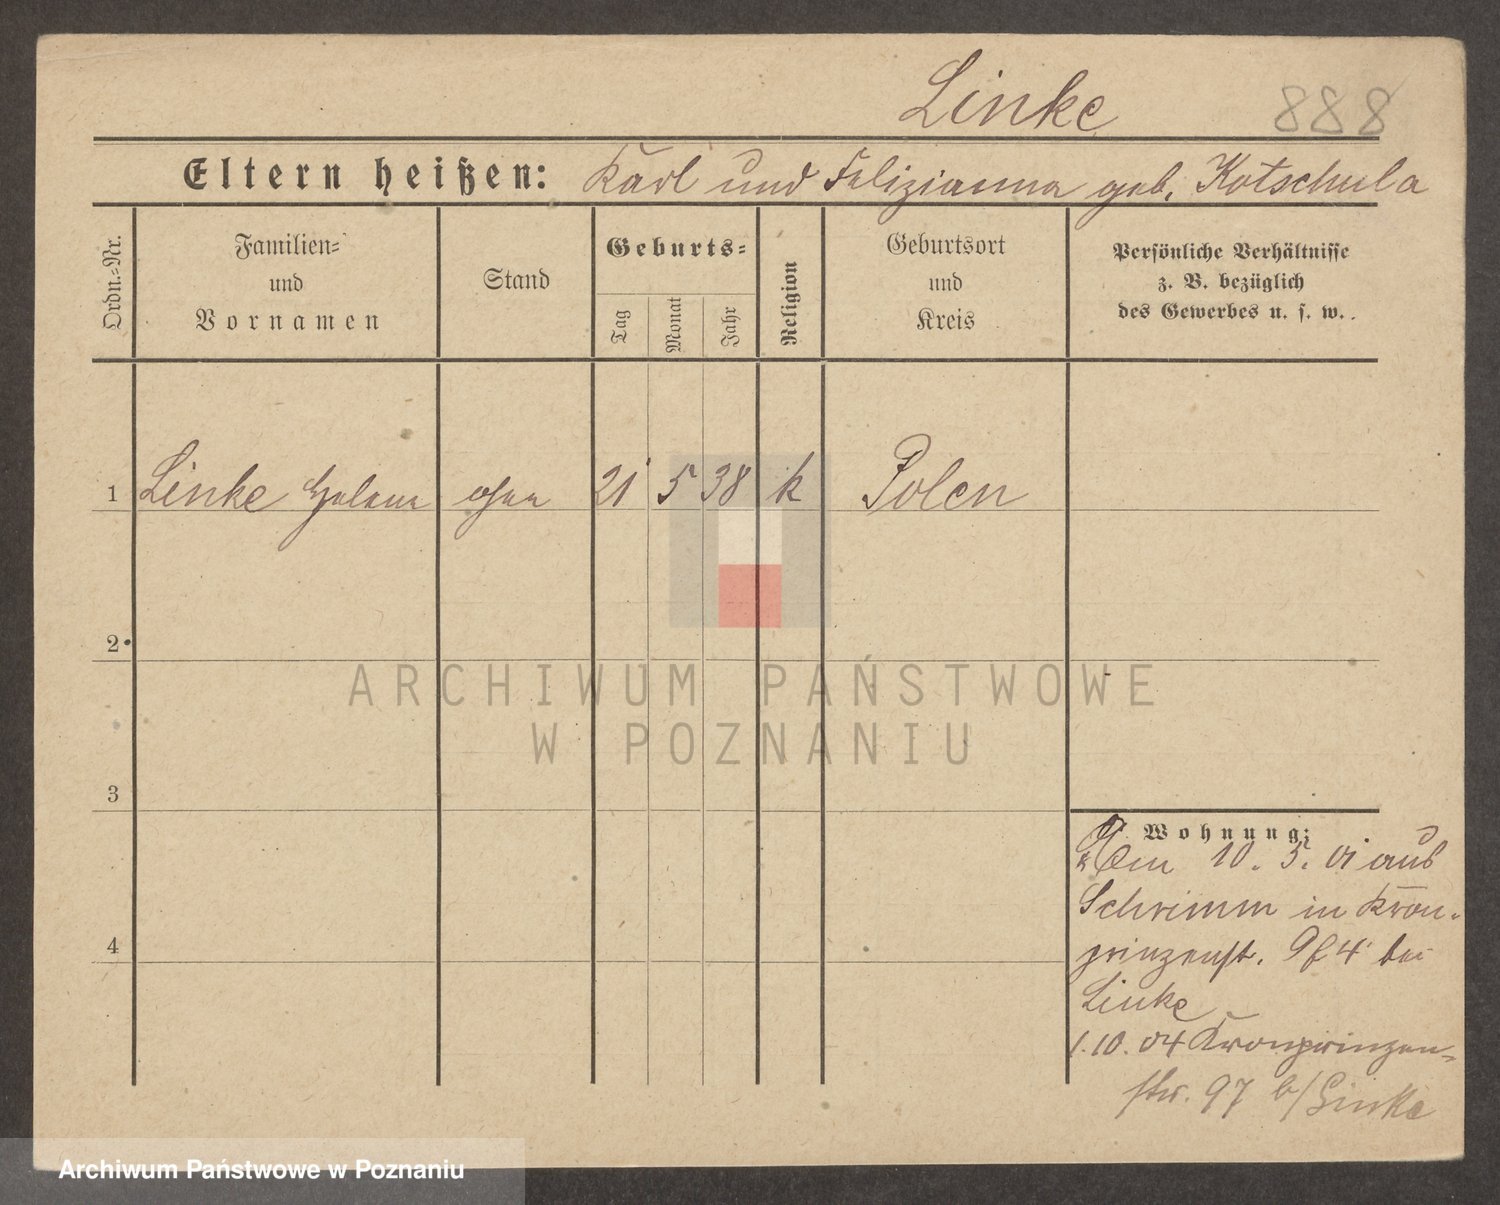 Linke 888
Eltern heißen: Karl und Felizianna geb. Kotschula
Ordn.-Nr.
Familien-
und
Vornamen
Stand
Geburts-
Tag
Monat
Jahr
Religion
Geburtsort
und
Kreis
Persönliche Verhältnisse
z. B. bezüglich
des Gewerbes u. s. w.
1 Linke Helene ohne 21 5 38 k Polen
2
3
4
Wohnung:
Am 10. 5. 01 aus
Schrimm in Kron-
prinzenst. 4 bei
Linke
1.10.04 Kronprinzen-
str. 97 b/Linke
ARCHIWUM PAŃSTWOWE
W POZNANIU
Archiwum Państwowe w Poznaniu